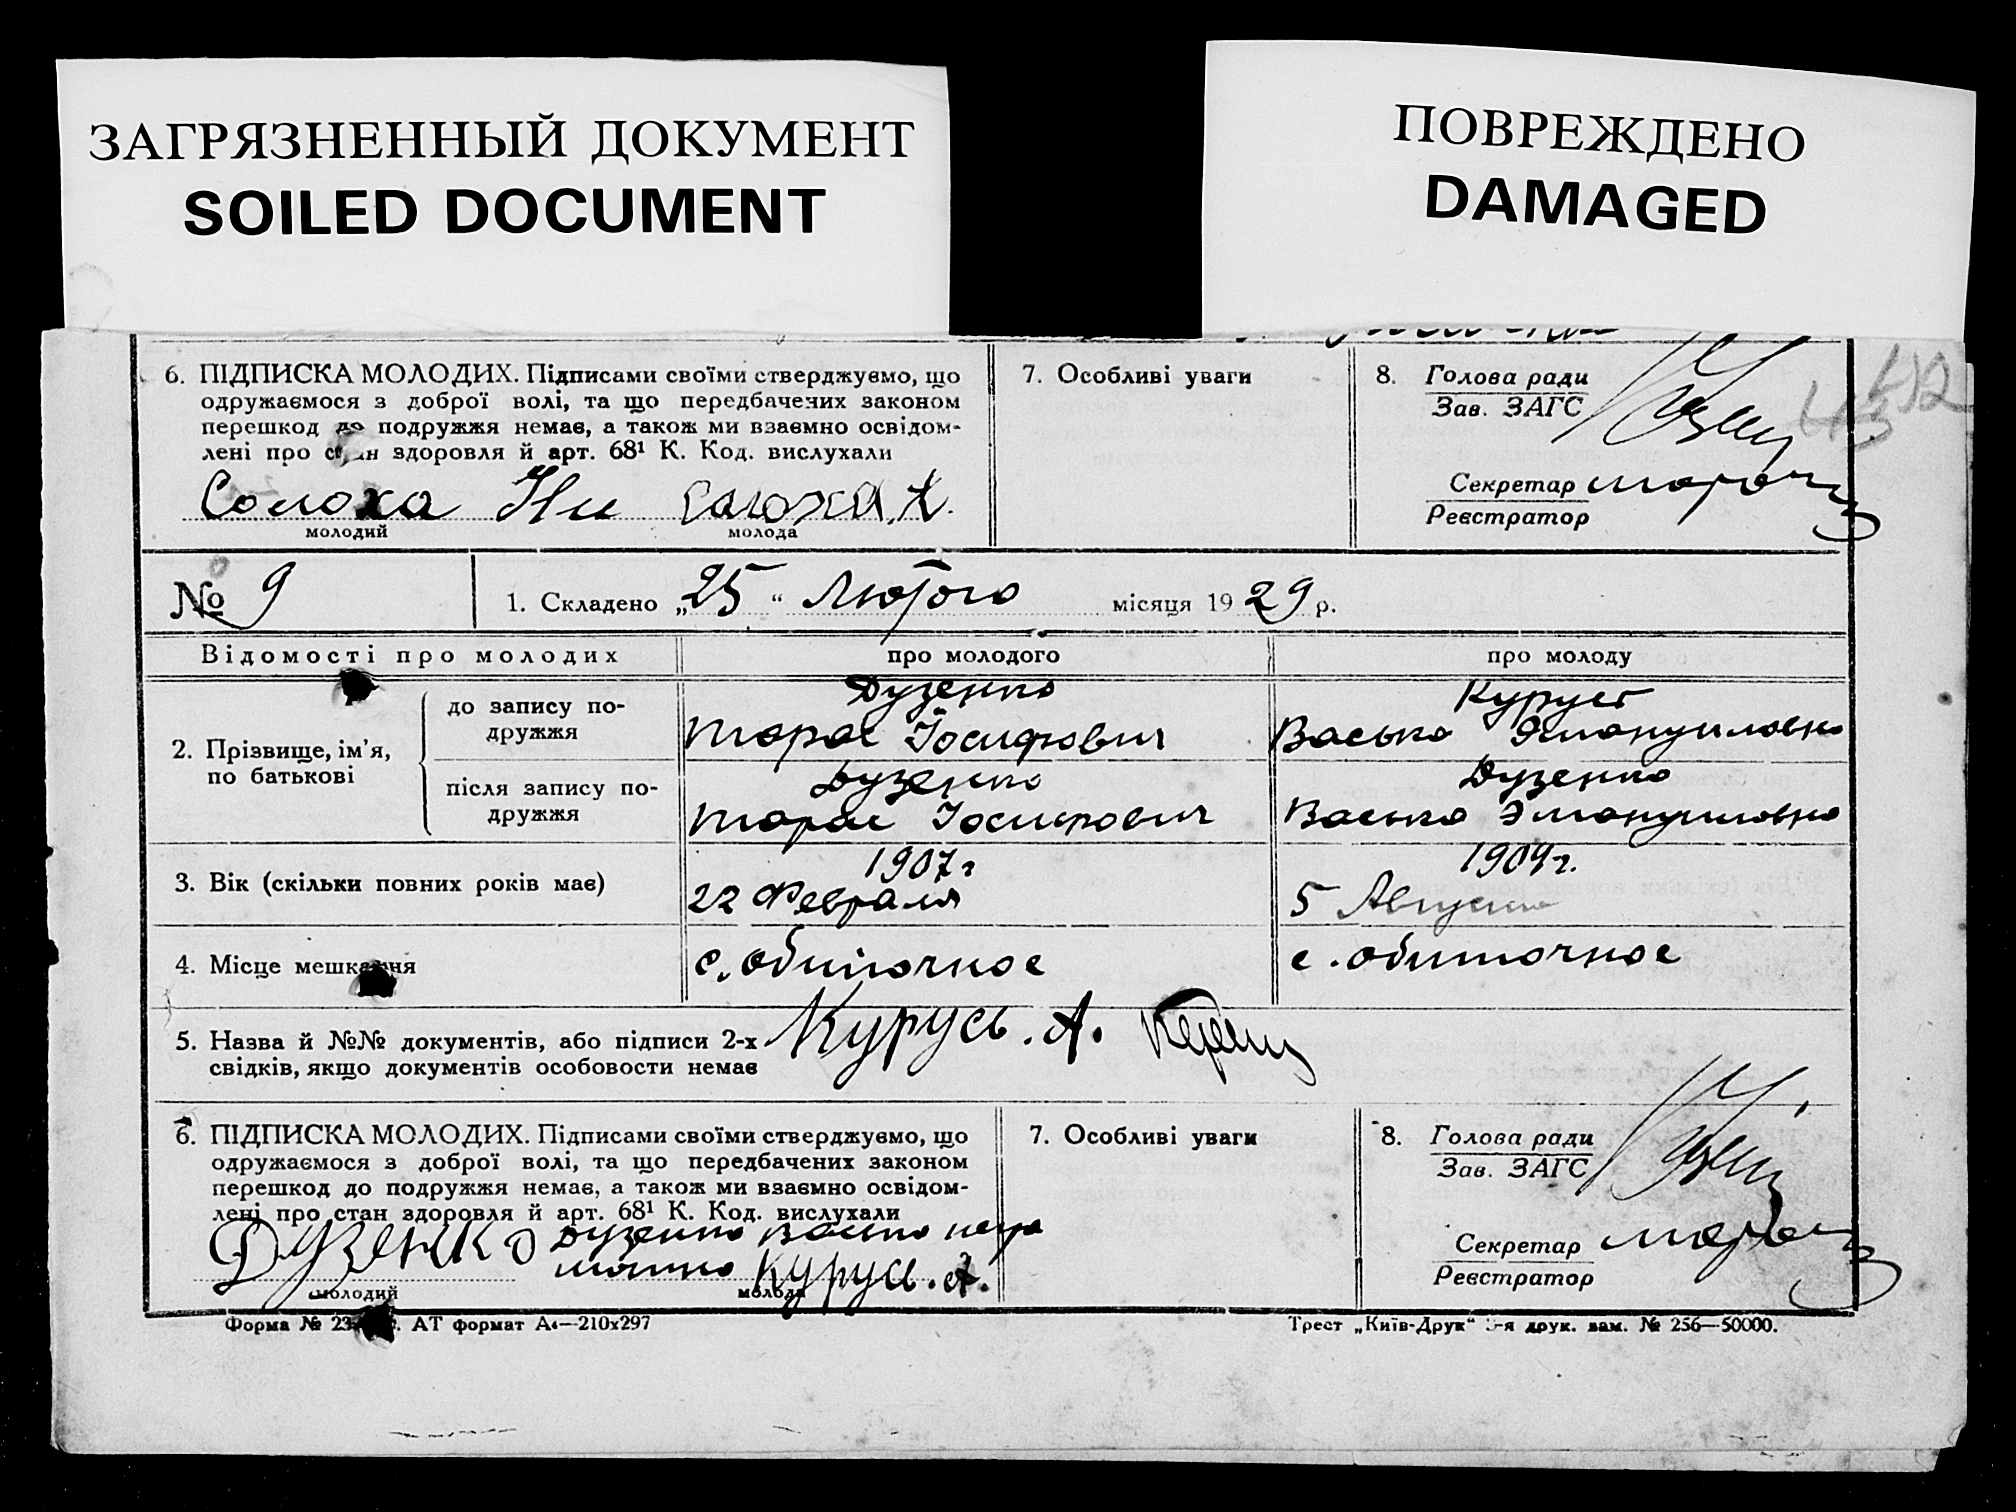 ЗАГРЯЗНЕННЫЙ ДОКУМЕНТ
SOILED DOCUMENT
ПОВРЕЖДЕНО
DAMAGED
6. ПІДПИСКА МОЛОДИХ. Підписами своїми стверджуємо, що
одружаємося з доброї волі, та що передбачених законом
перешкод до подружжя немає, а також ми взаємно освідом-
лені про стан здоровля й арт. 68¹ К. Код. вислухали
Солоха
молодий
молода
7. Особливі уваги
8. Голова ради
Зав. ЗАГС
Секретар
Реєстратор
№ 9
1. Складено „25“ Лютого місяця 1929 р.
Відомості про молодих
про молодого
про молоду
2. Прізвище, ім'я,
по батькові
до запису по-
дружжя
Дузенко
Тарас Іосифович
Курусь
Васька Эмануиловна
після запису по-
дружжя
Дузенко
Тарас Іосифович
Дузенко
Васька Эмануиловна
3. Вік (скільки повних років має)
1907 г
22 Февраля
1909 г.
5 Августа
4. Місце мешкання
с. Обиточное
с. Обиточное
5. Назва й №№ документів, або підписи 2-х
свідків, якщо документів особовости немає
Курусь. А.
6. ПІДПИСКА МОЛОДИХ. Підписами своїми стверджуємо, що
одружаємося з доброї волі, та що передбачених законом
перешкод до подружжя немає, а також ми взаємно освідом-
лені про стан здоровля й арт. 68¹ К. Код. вислухали
Дузенко
Дузенко Васька негра
мотна Курусь. А.
молодий
молода
7. Особливі уваги
8. Голова ради
Зав. ЗАГС
Секретар
Реєстратор
Форма № АТ формат А4—210х297
Трест „Київ-Друк“ 3-я друк. зам. № 256—50000.